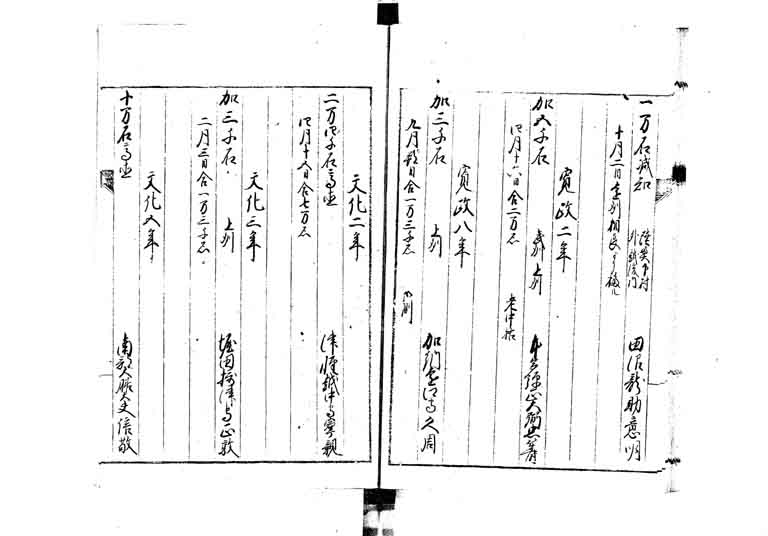 一万石減知
陸奥下村
十月二日遠列相良ヨリ移ル
田沼龍助意明
寛政二年
加五千石
武列上列
四月十六日合二万石
老中話
寛政八年
加三千石
上列
九月朔日合一万三千石
加納遠江守久周
文化二年
二万四千石高直
四月十五日合七万石
津軽越中守寧親
文化三年
加三千石
上列
二月三日合一万三千石
堀田摂津守正敦
文化五年
十万石高直
南部大膳大夫信敬